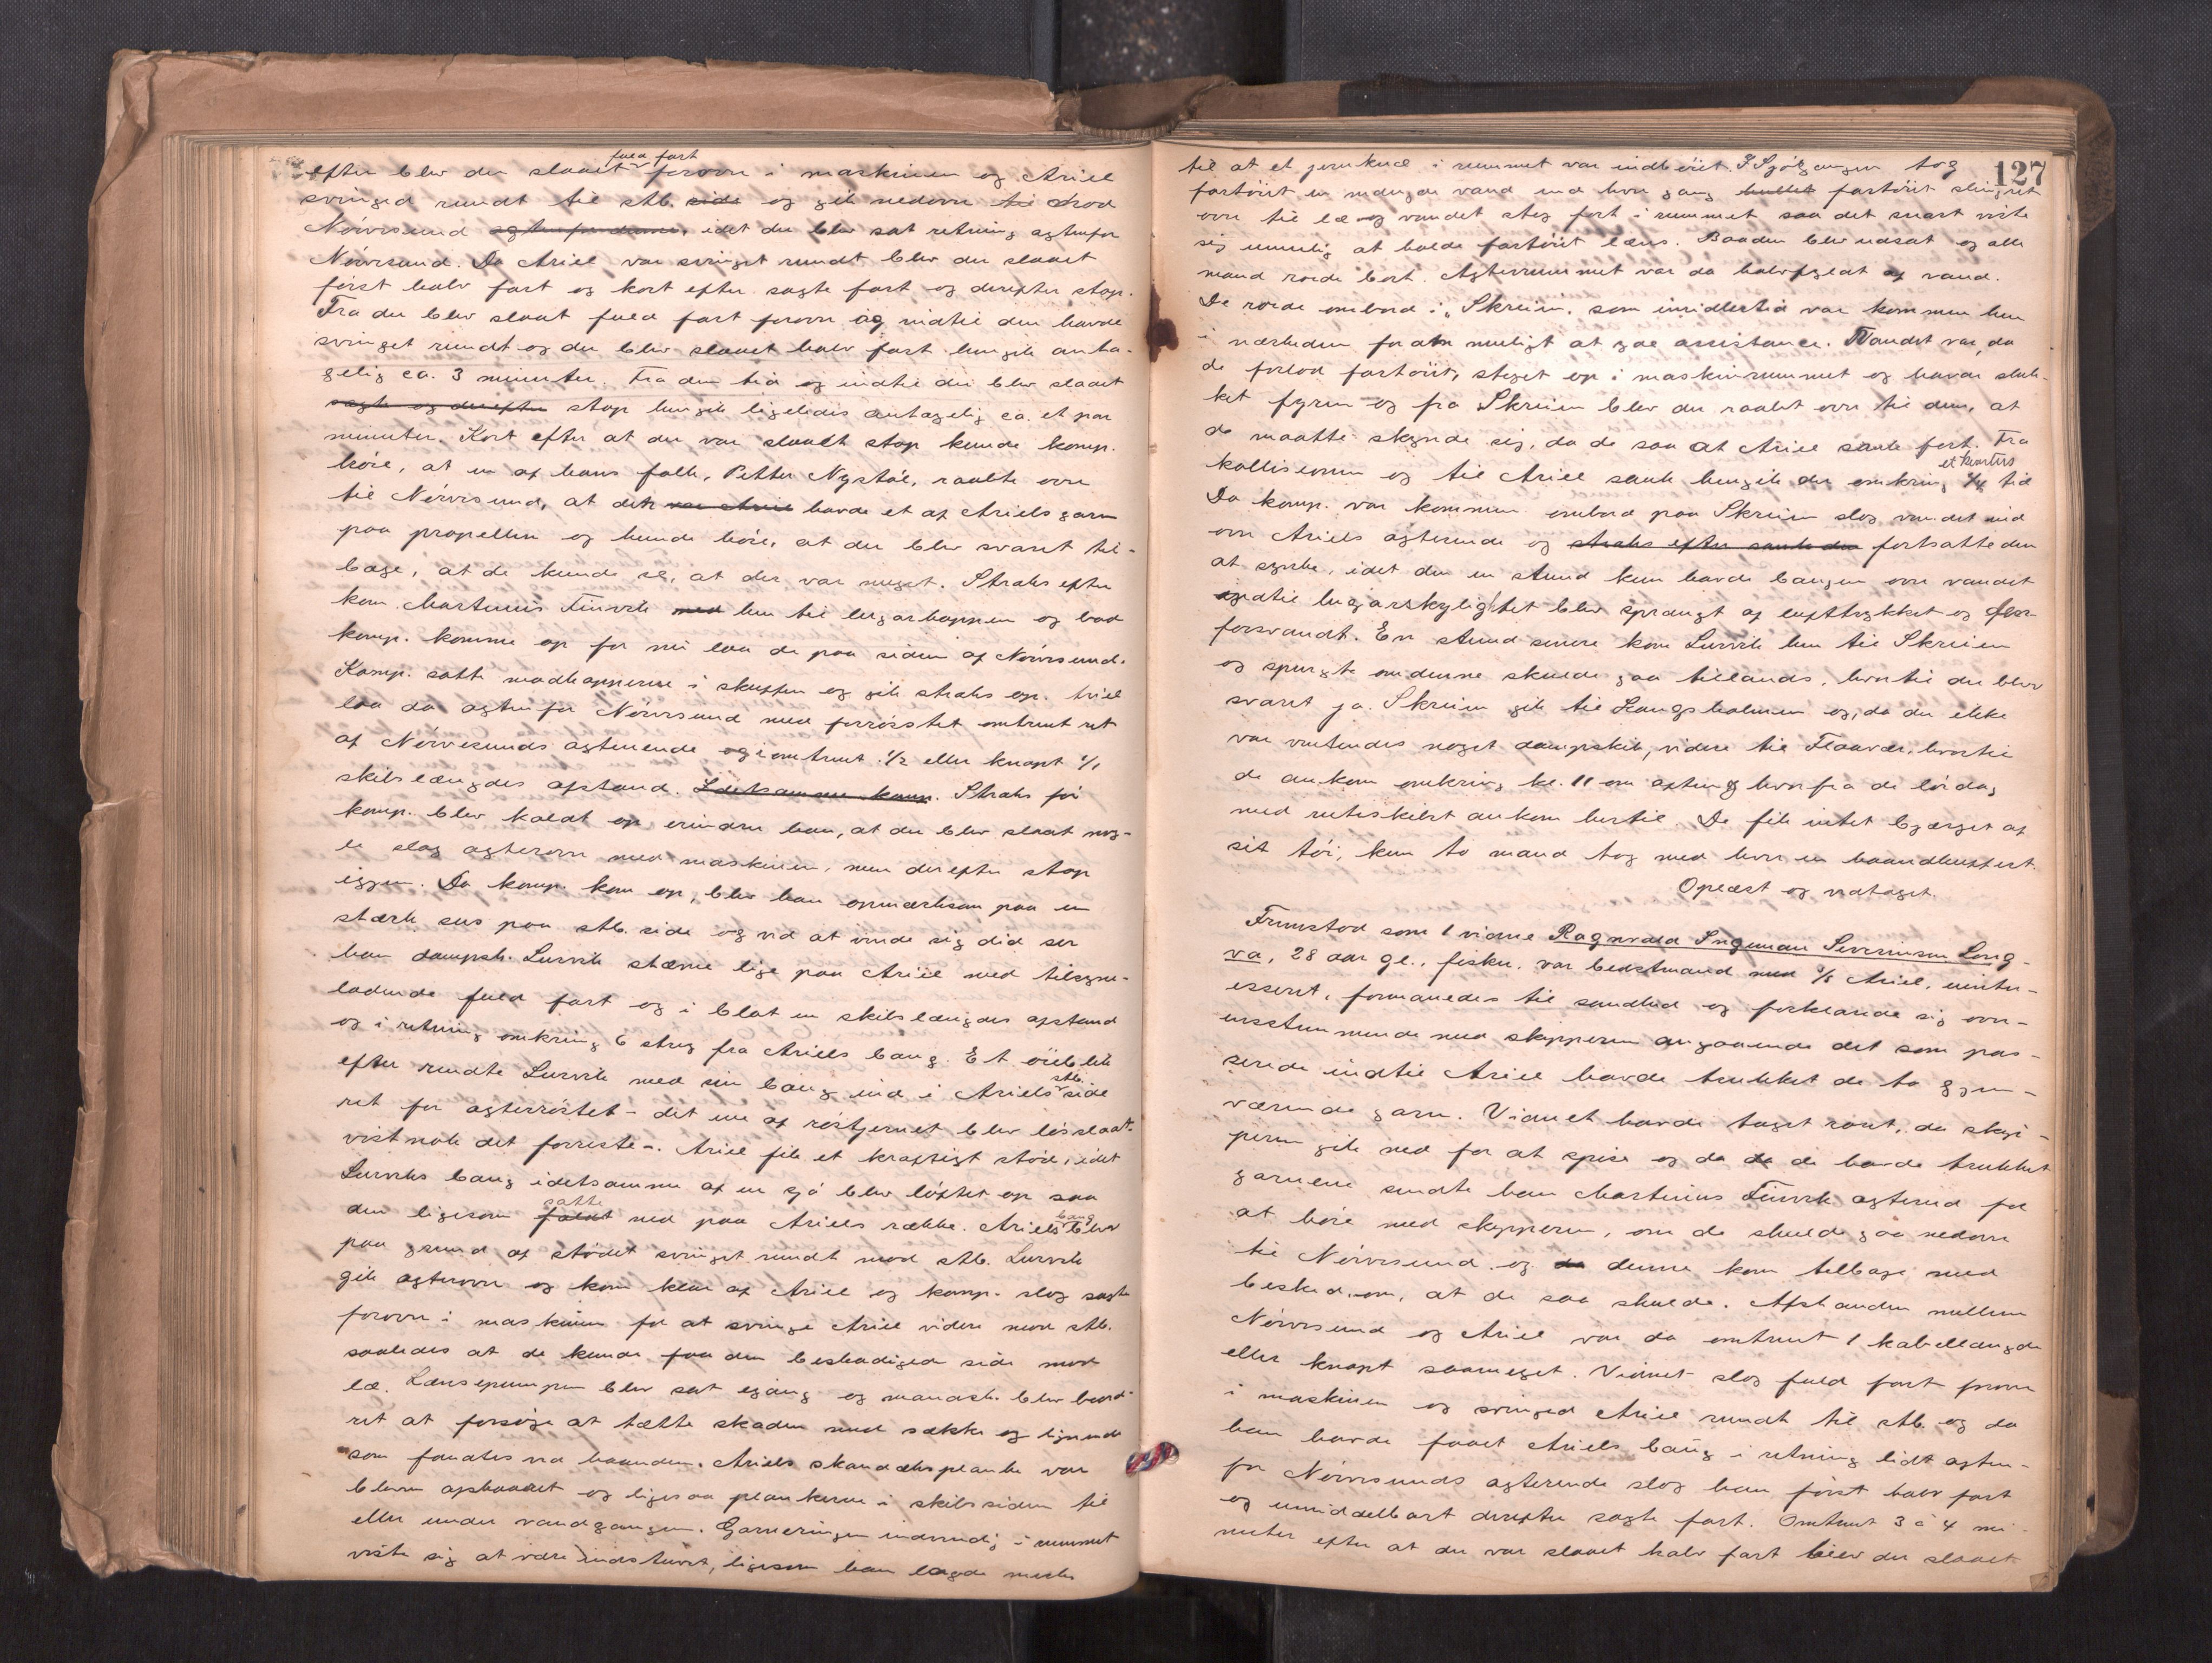 efter blev der slaaet fuld fart forover i maskinen og Ariel
svinged rundt til stb. side og gik nedover til mod
Nörvesund agtenfor denne, idet der blev sat retning agtenfor
Nörvesund. Da Ariel var svinget rundt blev der slaaet
först halv fart og kort efter sagte fart og derefter stop.
Fra der blev slaaet fuld fart forover og indtil den havde
svinget rundt og der blev slaaet halv fart hengik anta-
gelig ca. 3 minuter. Fra den tid og indtil der blev slaaet
sagte og derefter stop hengik ligeledes antagelig ca. et par
minuter. Kort efter at der var slaaet stop kunde komp.
höre, at en af hans folk, Petter Nystöl, raabte over
til Nörvesund, at de var Ariel havde et af Ariels garn
paa propellen og kunde höre, at der blev svaret til-
bage, at de kunde se, at der var noget. Straks efter
kom Martinus Furvik med hen til lugarkappen og bad
komp. komme op for nu laa de paa siden af Nörvesund.
Komp. satte madkopperne i skuffen og gik straks op. Ariel
laa da agtenfor Nörvesund med forröstet omtrent ret
af Nörvesunds agterende og i omtrent 1/2 eller knapt 1/1
skibslængdes afstand. Idetsamme komp. Straks för
komp. blev kaldt op erindrer han, at der blev slaat nog-
le slag agterover med maskinen, men derefter stop
igjen. Da komp. kom op, blev han opmærksom paa en
stærk sus paa stb. side og ved at vende sig did ser
han dampsk. Lurvik stævne lige paa Ariel med tilsyne-
ladende fuld fart og i blot en skibslængdes afstand
og i retning omkring 6 streg fra Ariels baug. Et öieblik
efter rendte Lurvik med sin baug ind i Ariels stb. side
ret for agterröstet - det ene af röstjernet blev lösslaat
vistnok det forreste -. Ariel fik et kraftigt stöd, idet
Lurviks baug idetsamme af en sjö blev löftet op saa
den ligesom faldt satte ned paa Ariels række. Ariels baug blev
paa grund af stödet svinget rundt mod stb. Lurvik
gik agterover og kom klar af Ariel og komp. slog sagte
forover i maskinen for at svinge Ariel videre mod stb.
saaledes at de kunde faa den beskadigede side mod
læ. Lænsepumpen blev sat igang og mandsk. blev beord-
ret at forsöge at tætte skaden med sække og lignende
som fandtes ved haanden. Ariels skandæksplanke var
bleven afskaaret og ligesaa plankerne i skibssiden til
eller under vandgangen. Garneringen indvendig i rummet
viste sig at være indstuvet, ligesom han lagde merke
127
til at et jernkne i rummet var indböiet. I Sjögangen tog
fartöiet en mængde vand ind hver gang hullet fartöiet slingret
over til læ og vandet steg fort i rummet saa det snart viste
sig umulig at holde fartöiet læns. Baaden blev udsat og alle
mand roede bort. Agterrummet var da halvfyldt af vand.
De roede ombord i "Skreien", som imidlertid var kommen hen
i nærheden for om muligt at yde assistance. Vandet var, da
de forlod fartöiet, steget op i maskinrummet og havde sluk-
ket fyren og fra Skreien blev der raabt over til dem, at
de maatte skynde sig, da de saa at Ariel sank fort. Fra
kollisionen og til Ariel sank hengik der omkring 1/4 et kvarters tid
Da komp. var kommen ombord paa Skreien slog vandet ind
over Ariels agterende og straks efter sank den fortsatte den
at synke, idet den en stund kun havde baugen over vandet
indtil lugarskylightet blev sprængt af lufttrykket og den
forsvandt. En stund senere kom Lurvik hen til Skreien
og spurgte om denne skulde gaa tillands, hvortil der blev
svaret ja. Skreien gik til Langsholmen og, da der ikke
var ventendes noget dampskib, videre til Flaavær, hvortil
de ankom omkring kl. 11 om aften og hvorfra de lördag
med ruteskibet ankom hertil. De fik intet bjærget af
sit töi, kun to mand tog med hver en haandkuffert.
Oplæst og vedtaget.
Fremstod som 1 vidne Ragnvald Ingeman Severinsen Long-
va, 28 aar gl., fisker, var bedstmand med d/s Ariel, uinter-
esseret, formanedes til sandhed og forklarede sig over-
ensstemmende med skipperen angaaende det som pas-
serede indtil Ariel havde trukket de to gjen-
værende garn. Vidnet havde taget roret, da skip-
peren gik ned for at spise og da da de havde trukket
garnene sendte han Martinus Furvik agterud for
at höre med skipperen, om de skulde gaa nedover
til Nörvesund og da denne kom tilbage med
besked om, at de saa skulde. Afstanden mellem
Nörvesund og Ariel var da omtrent 1 kabellængde
eller knapt saameget. Vidnet slog fuld fart forover
i maskinen og svinged Ariel rundt til stb. og da
han havde faaet Ariels baug i retning lidt agten-
for Nörvesunds agterende slog han först halv fart
og umiddelbart derefter sagte fart. Omtrent 3 à 4 mi-
nuter efter at der var slaaet halv fart blev der slaaet